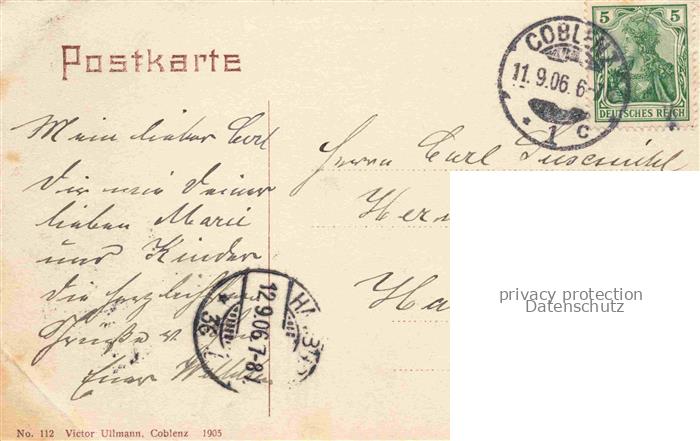 Postkarte
COBLENZ
11.9.06. 6-7
* 1 C
5 5
DEUTSCHES REICH
Mein lieber Carl
Dir wie Deiner
lieben Marie
und Kinder
die herzlichsten
Grüße
Euer
Herrn Carl
12.9.06. 7-8
* 36
privacy protection
Datenschutz
No. 112 Victor Ullmann, Coblenz 1905